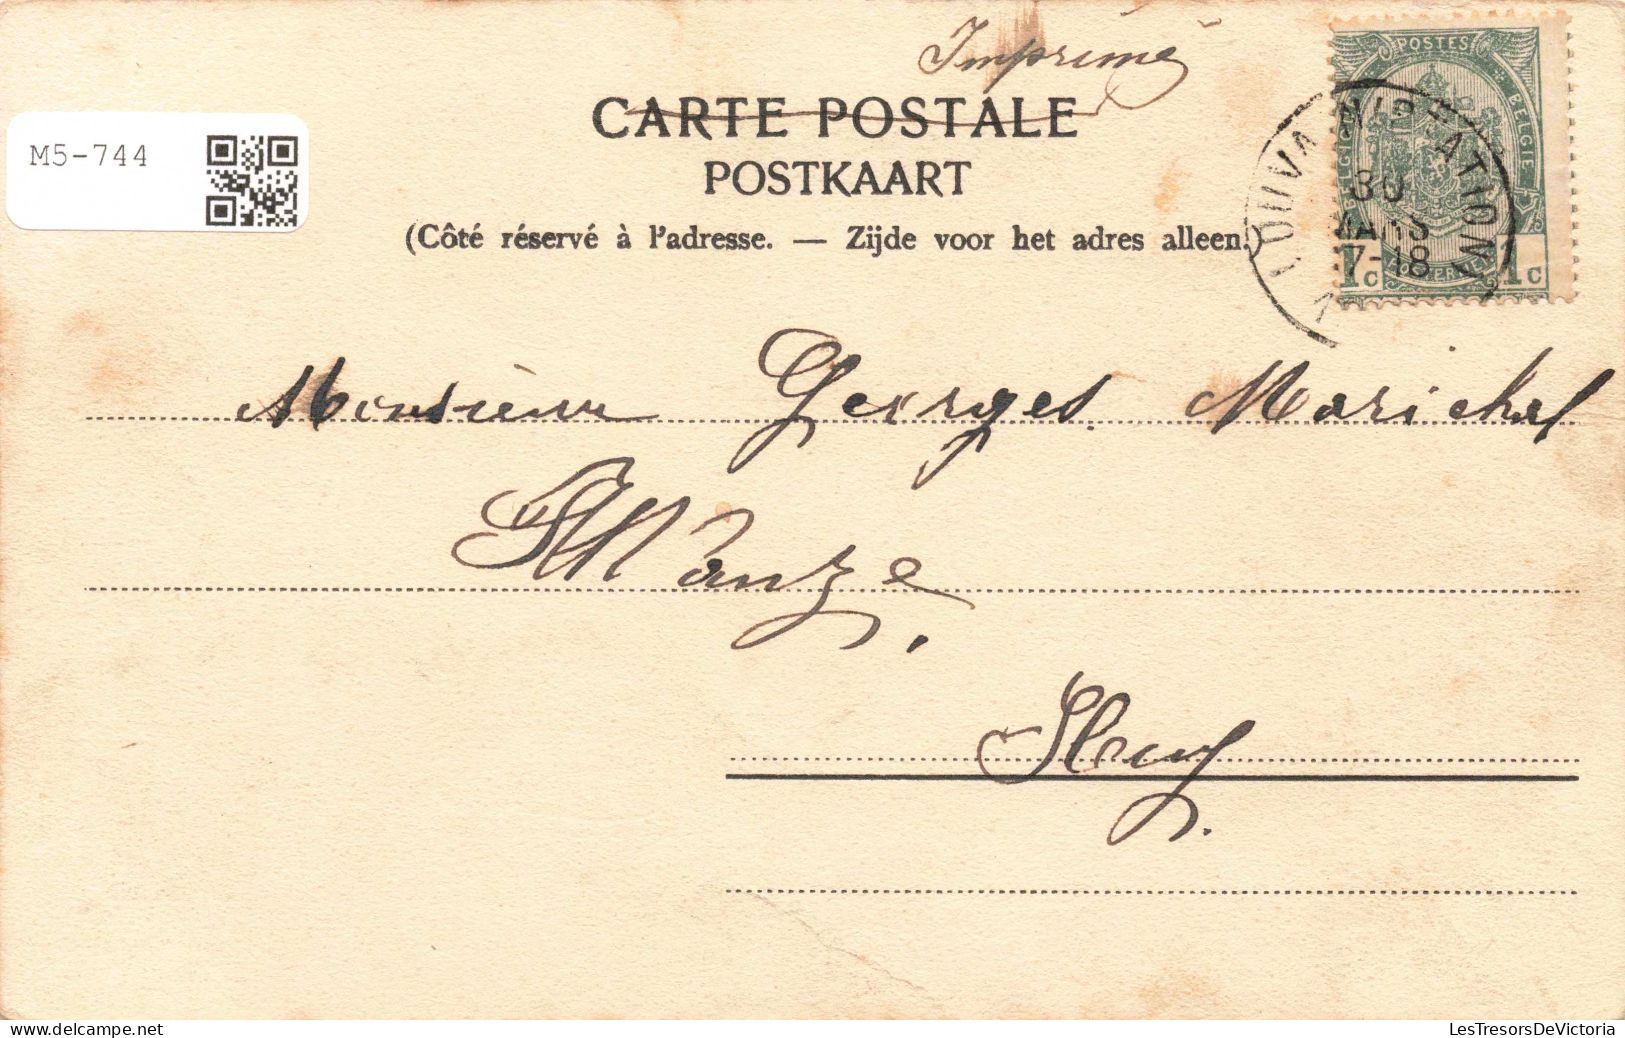 Imprimé
CARTE POSTALE
POSTKAART
(Côté réservé à l'adresse. — Zijde voor het adres alleen.)
M5-744
POSTES
BELGIQUE
BELGIE
30
MARS
17-18
1c
1c
Monsieur Georges Marichal
Huy.
LesTresorsDeVictoria
delcampe.net